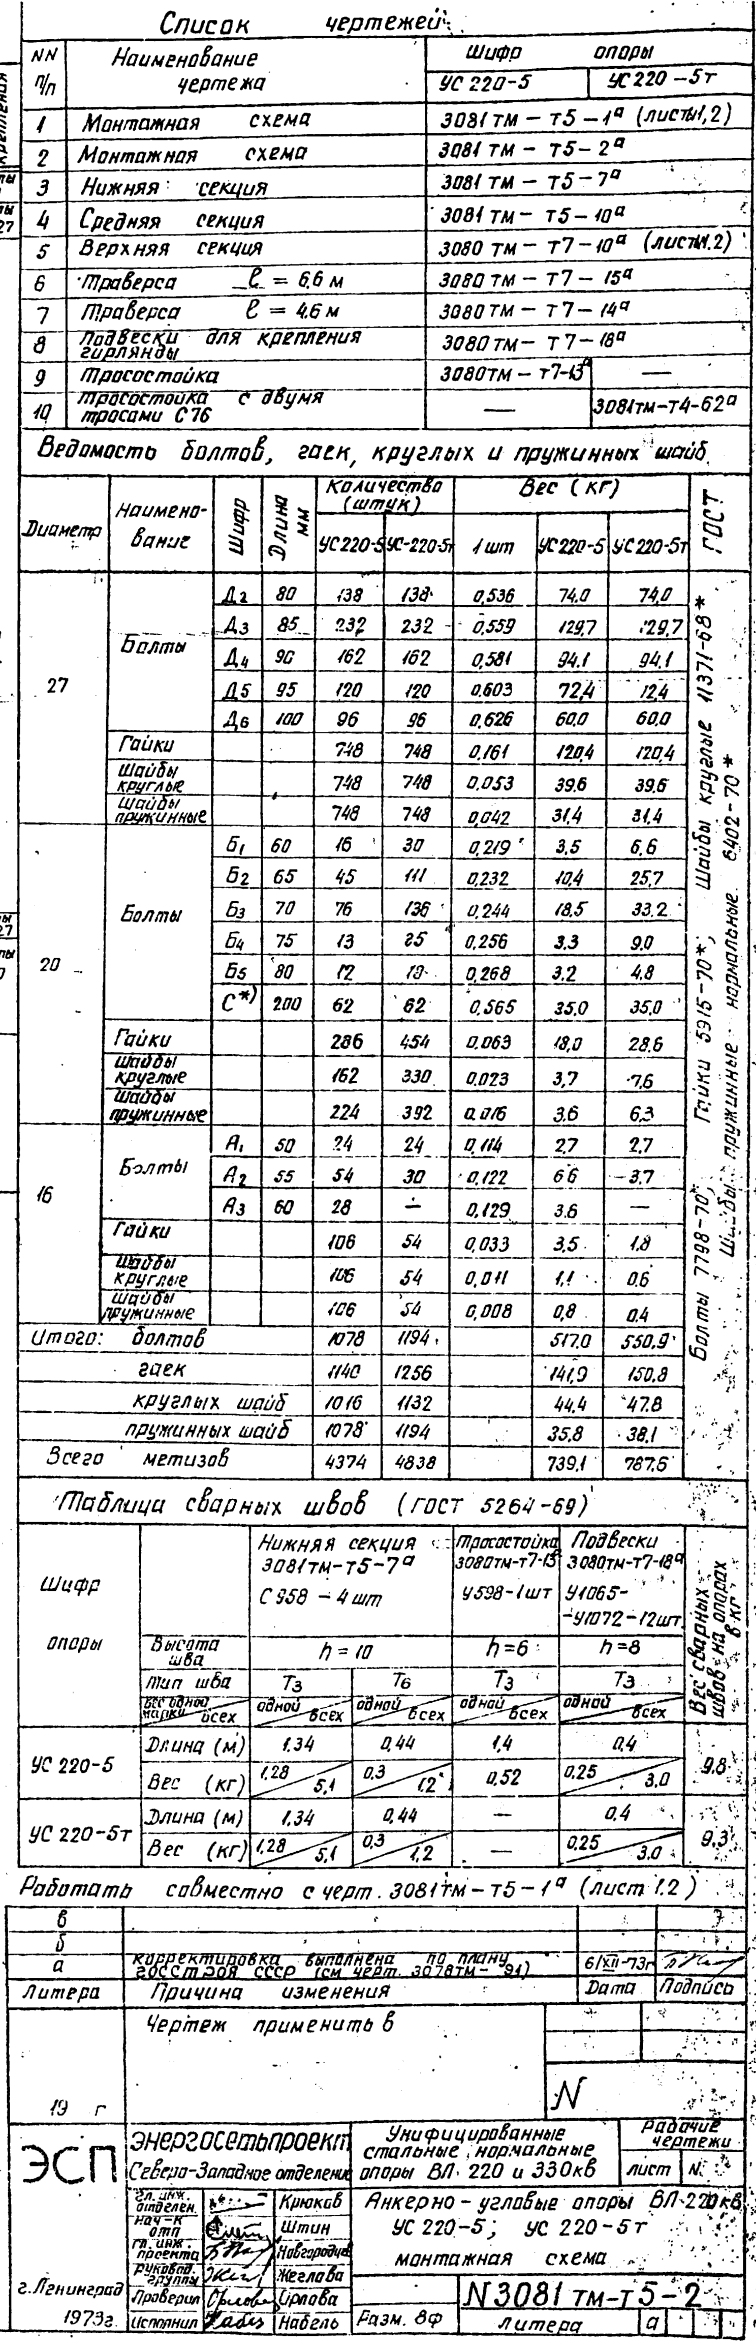 Список чертежей
NN п/п Наименование чертежа Шифр опоры
УС 220-5 УС 220-5т
1 Монтажная схема 3081тм-т5-1а (листы 1,2)
2 Монтажная схема 3081тм-т5-2а
3 Нижняя секция 3081тм-т5-7а
4 Средняя секция 3081тм-т5-10а
5 Верхняя секция 3080тм-т7-10а (листы 1,2)
6 Траверса ℓ = 6,6 м 3080тм-т7-15а
7 Траверса ℓ = 4,6 м 3080тм-т7-14а
8 Подвески для крепления гирлянды 3080тм-т7-18а
9 Тросостойка 3080тм-т7-13а —
10 Тросостойка с двумя тросами С76 — 3081тм-т4-62а
Ведомость болтов, гаек, круглых и пружинных шайб
Диаметр Наименование Шифр Длина мм Количество (штук) Вес (кг) ГОСТ
УС220-5 УС-220-5т 1 шт УС220-5 УС220-5т
27 Болты Д2 80 138 138 0,536 74,0 74,0
Д3 85 232 232 0,559 129,7 129,7
Д4 90 162 162 0,581 94,1 94,1
Д5 95 120 120 0,603 72,4 72,4
Д6 100 96 96 0,626 60,0 60,0
Гайки 748 748 0,161 120,4 120,4
Шайбы круглые 748 748 0,053 39,6 39,6
Шайбы пружинные 748 748 0,042 31,4 31,4
20 Болты Б1 60 16 30 0,219 3,5 6,6
Б2 65 45 111 0,232 10,4 25,7
Б3 70 76 136 0,244 18,5 33,2
Б4 75 13 35 0,256 3,3 9,0
Б5 80 12 18 0,268 3,2 4,8
С*) 200 62 62 0,565 35,0 35,0
Гайки 286 454 0,063 18,0 28,6
Шайбы круглые 162 330 0,023 3,7 7,6
Шайбы пружинные 224 392 0,016 3,6 6,3
16 Болты А1 50 24 24 0,114 2,7 2,7
А2 55 54 30 0,122 6,6 3,7
А3 60 28 — 0,129 3,6 —
Гайки 106 54 0,033 3,5 1,8
Шайбы круглые 106 54 0,011 1,1 0,6
Шайбы пружинные 106 54 0,008 0,8 0,4
Болты 7798-70*, Гайки 5915-70*, Шайбы круглые 11371-68*
Шайбы пружинные нормальные 6402-70*
Итого: болтов 1078 1194 517,0 550,9
гаек 1140 1256 141,9 150,8
круглых шайб 1016 1132 44,4 47,8
пружинных шайб 1078 1194 35,8 38,1
Всего метизов 4374 4838 739,1 787,6
Таблица сварных швов (ГОСТ 5264-69)
Шифр опоры
Нижняя секция 3081тм-т5-7а С958 - 4 шт
Тросостойка 3080тм-т7-13а У598-1шт
Подвески 3080тм-т7-18а У1065- -У1072-12шт.
Вес сварных швов на опорах в кг
Высота шва h=10 h=6 h=8
Тип шва Т3 Т6 Т3 Т3
Вес одной марки всех одной всех одной всех одной всех одной всех
УС 220-5 Длина (м) 1,34 0,44 1,4 0,4 9,8
Вес (кг) 1,28 5,1 0,3 1,2 0,52 0,25 3,0
УС 220-5т Длина (м) 1,34 0,44 — 0,4 9,3
Вес (кг) 1,28 5,1 0,3 1,2 — 0,25 3,0
Работать совместно с черт. 3081тм-т5-1а (лист 1,2)
в
б
а корректировка выполнена по плану Госстроя СССР (см черт. 3078тм- 91) 6/XII-73г
Литера Причина изменения Дата Подпись
Чертеж применить в
19 г
N
ЭСП
Энергосетьпроект
Северо-Западное отделение
Унифицированные стальные нормальные опоры ВЛ 220 и 330кв
Рабочие чертежи
лист N
Гл. инж. отделен. Крюков
Нач-к отп Штин
Гл. инж. проекта
Руковод. группы Жеглова
Проверил Орлова
Исполнил Набель
Анкерно-угловые опоры ВЛ 220кв
УС 220-5; УС 220-5т
монтажная схема
г. Ленинград
1973г.
N3081тм-т5-2
Разм. 8ф Литера а